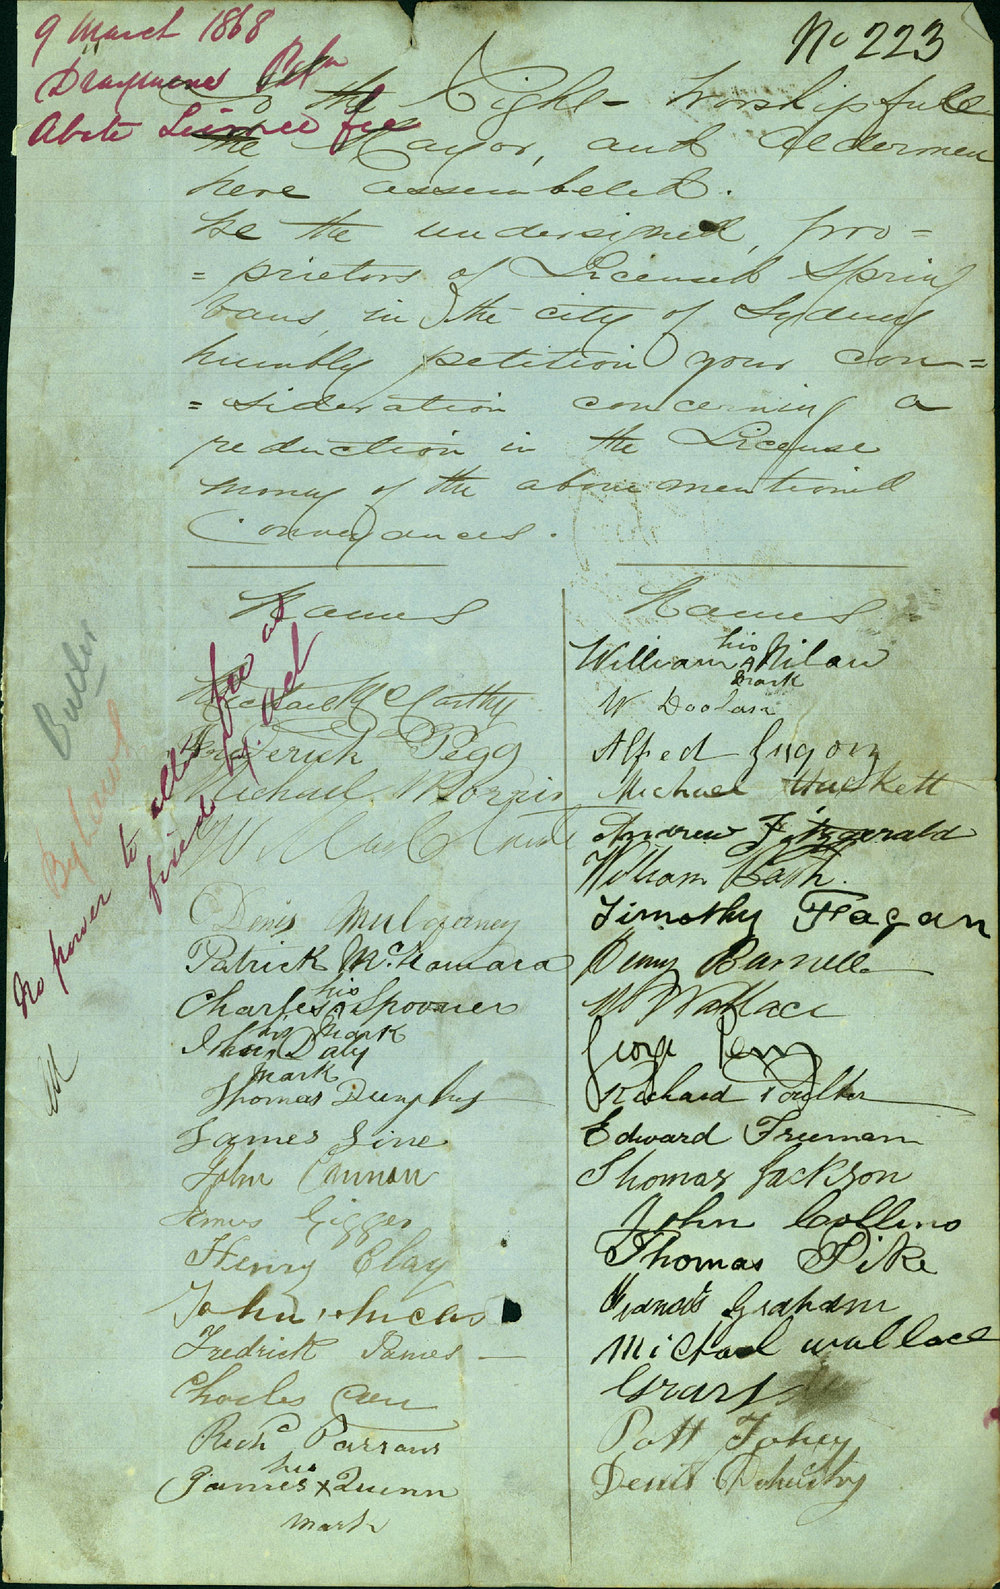 9 March 1868
No 223
Draymens Petn
Abate License fee
To the Right Worshipfull
the Mayor, and Aldermen
here assembeled.
We the undersigned, pro=
=prietors of Licensed Spring
Vans, in the city of Sydney
humbly petition your con=
=sideration concerning a
reduction in the License
money of the above mentioned
Conveyances.
Names
McCarthy
Frederick Pegg
Michael Morris
W.
Denis Mulqueeney
Patrick McNamara
Charles his Spooner
mark
John Daly
mark
Thomas Dunphy
James Sine
John Cannon
James
Henry Clay
John Lucas
Fredrick James
Charles
Richd Parsons
his
James x Quinn
mark
Names
his
William Nilan
mark
W Doolan
Alfred Gregory
Michael Hackett
Andrew Fitzgerald
William Cash.
Timothy Fagan
Denny Burnell
W Wallace
George Perry
Richard Poulter
Edward Freeman
Thomas Jackson
John Collins
Thomas Pike
Francis Graham
Michael wallace
Grary
Patt Fahey
Denis Doherty
Butler
By Laws
No power to alter fee as
fixed by Act